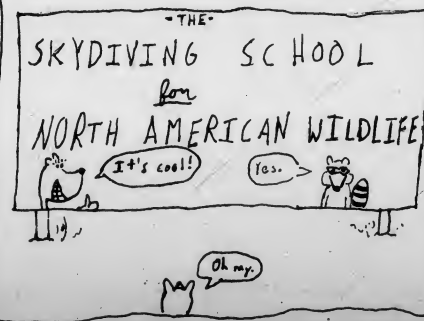 -THE-
SKYDIVING SCHOOL
for
NORTH AMERICAN WILDLIFE
It's cool!
Yes.
Oh my.